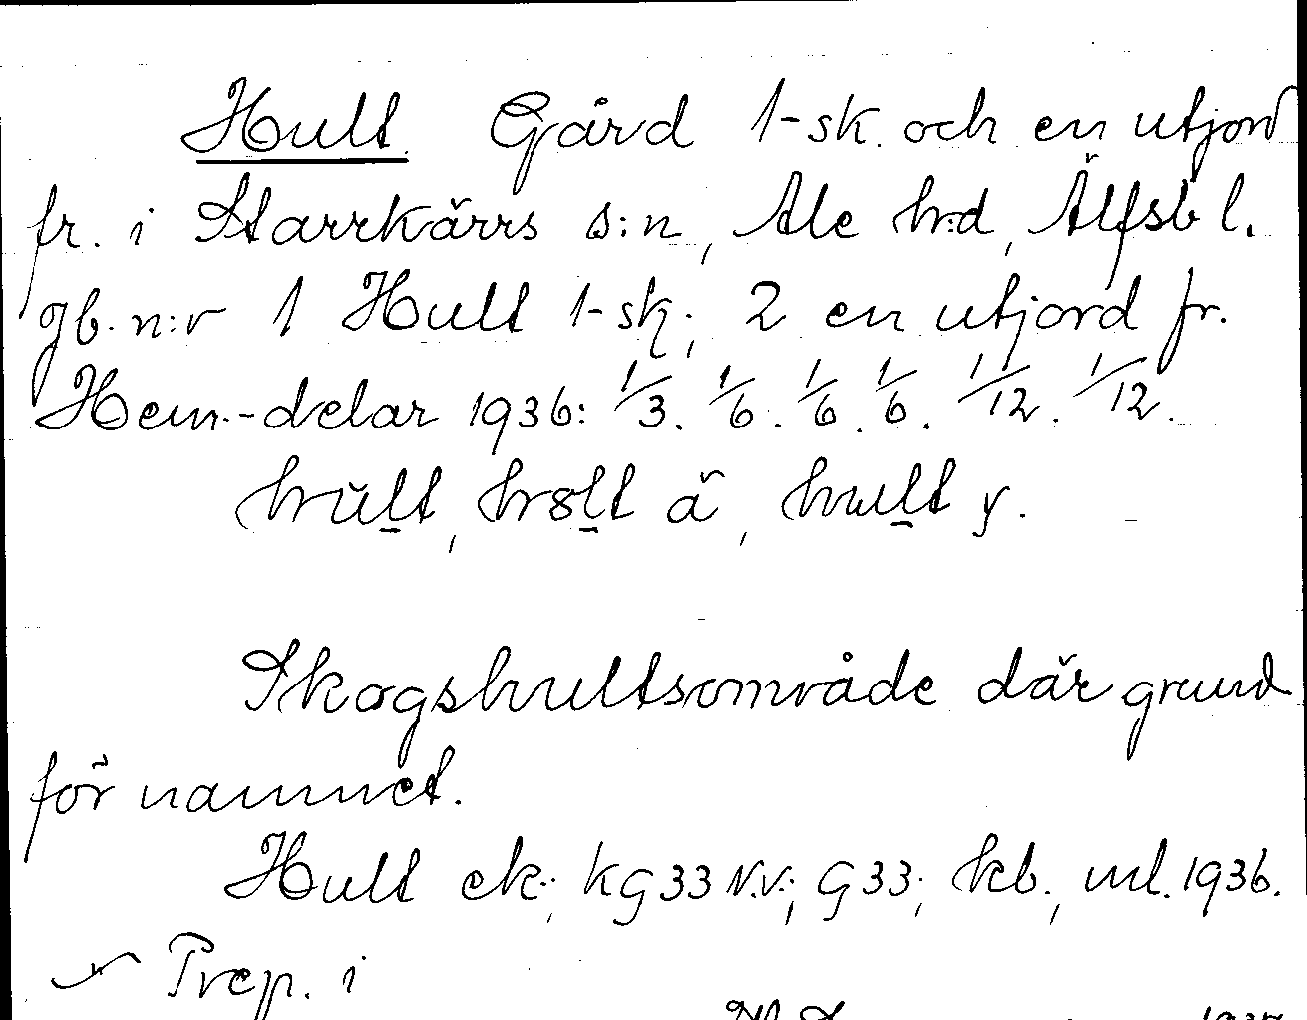 Hult. Gård 1-sk. och en utjord
fr. i Starrkärrs s:n, Ale h:d, Älfsb l.
Jb. n:r 1 Hult 1-sk.; 2 en utjord fr.
Hem.-delar 1936: 1/3. 1/6. 1/6. 1/6. 1/12. 1/12.
hult, ä, hult y.
Skogshultsområde där grund
för namnet.
Hult ek.; kg 33 N.V.; G 33; kb., ml. 1936.
Prep. i